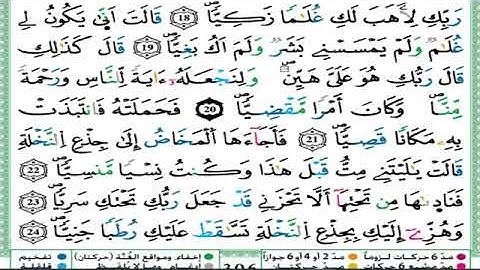 رَبِّكِ لِأَهَبَ لَكِ غُلَٰمٗا زَكِيّٗاۖ 18 قَالَتْ أَنّ۪يٰ يَكُونُ لِے
غُلَٰمٞ وَلَمْ يَمْسَسْنِے بَشَرٞ وَلَمَ اَكُ بَغِيّٗاۖ 19 قَالَ كَذَٰلِكِ
قَالَ رَبُّكِ هُوَ عَلَيَّ هَيِّنٞۖ وَلِنَجْعَلَهُۥٓ ءَايَةٗ لِّلنَّاسِ وَرَحْمَةٗ
مِّنَّاۖ وَكَانَ أَمْرٗا مَّقْضِيّٗاۖ 20 فَحَمَلَتْهُ فَانتَبَذَتْ
بِهِۦ مَكَانٗا قَصِيّٗاۖ 21 فَأَجَآءَهَا اَ۬لْمَخَاضُ إِلَىٰ جِذْعِ اِ۬لنَّخْلَةِ
قَالَتْ يَٰلَيْتَنِے مِتُّ قَبْلَ هَٰذَا وَكُنتُ نِسْيٗا مَّنسِيّٗاۖ 22
فَنَاد۪يٰهَا مِن تَحْتِهَآ أَلَّا تَحْزَنِے قَدْ جَعَلَ رَبُّكِ تَحْتَكِ سَرِيّٗاۖ 23
وَهُزِّےٓ إِلَيْكِ بِجِذْعِ اِ۬لنَّخْلَةِ تَسَّٰقَطْ عَلَيْكِ رُطَبٗا جَنِيّٗاۖ 24
مدّ 6 حركات لزوماً مدّ 2 أو 4 أو 6 جوازاً إخفاء ومواقع الغُنَّة (حركتان) تفخيم